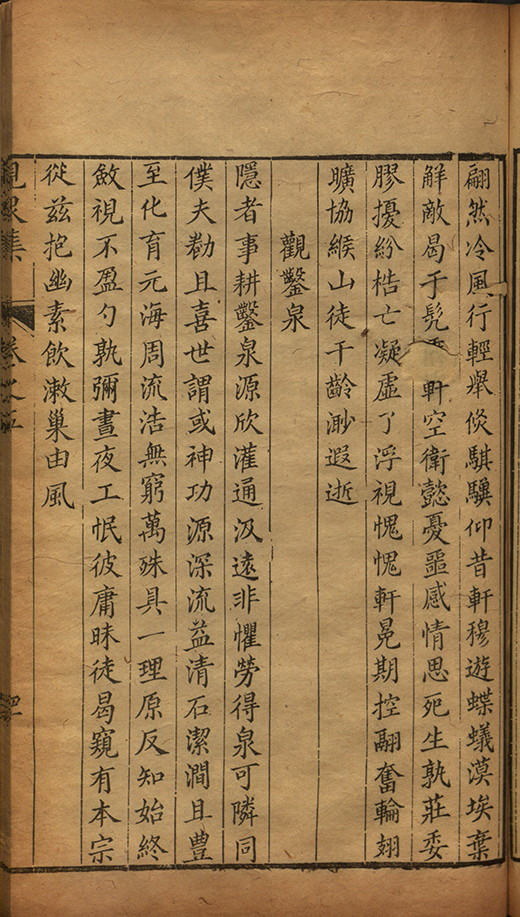 翩然冷風行輕舉倏騏驥仰昔軒穆遊蝶蟻漠埃棄
解敵曷于髡軒空衛懿憂噩感情思死生孰莊委
膠擾紛梏亡凝虛了浮視愧愧軒冕期控翮奮輪翅
曠協緱山徒千齡渺遐逝
觀鑿泉
隱者事耕鑿泉源欣灌通汲遠非懼勞得泉可隣同
僕夫勸且喜世謂或神功源深流益清石潔澗且豊
至化育元海周流浩無窮萬殊具一理原反知始終
斂視不盈勺孰彌晝夜工恨彼庸昧徒曷窺有本宗
從茲抱幽素飲漱巢由風